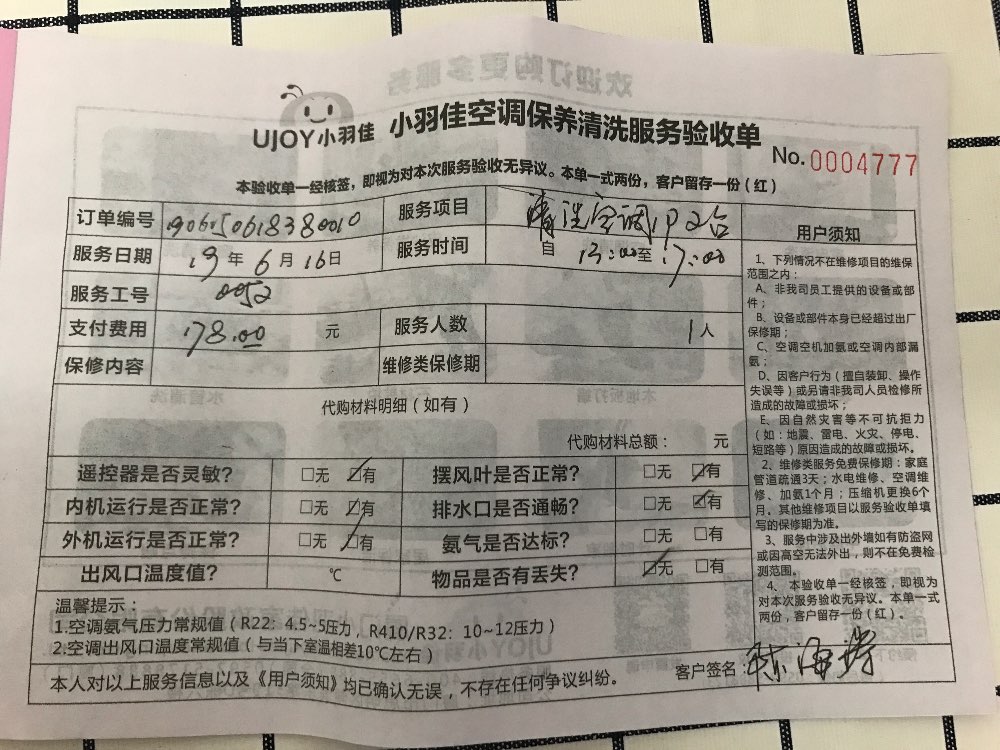 UJOY小羽佳 小羽佳空调保养清洗服务验收单
No.0004777
本验收单一经核签，即视为对本次服务验收无异议。本单一式两份，客户留存一份（红）
订单编号 1906150618380010 服务项目 清洗空调1P2台
服务日期 19年6月16日 服务时间 自13:00至17:00
服务工号 0052
支付费用 178.00 元 服务人数 1人
保修内容 维修类保修期
代购材料明细（如有）
代购材料总额： 元
遥控器是否灵敏? □无 ☑有 摆风叶是否正常? □无 ☑有
内机运行是否正常? □无 ☑有 排水口是否通畅? □无 ☑有
外机运行是否正常? □无 ☑有 氨气是否达标? □无 □有
出风口温度值? ℃ 物品是否有丢失? ☑无 □有
温馨提示：
1.空调氨气压力常规值（R22：4.5~5压力，R410/R32：10~12压力）
2.空调出风口温度常规值（与当下室温相差10℃左右）
客户签名：
本人对以上服务信息以及《用户须知》均已确认无误，不存在任何争议纠纷。
用户须知
1、下列情况不在维修项目的维保
范围之内：
A、非我司员工提供的设备或部
件；
B、设备或部件本身已经超过出厂
保修期；
C、空调空机加氨或空调内部漏
氨；
D、因客户行为（擅自装卸、操作
失误等）或另请非我司人员检修所
造成的故障或损坏；
E、因自然灾害等不可抗拒力
（如：地震、雷电、火灾、停电、
短路等）原因造成的故障或损坏。
2、维修类服务免费保修期：家庭
管道疏通3天；水电维修、空调维
修、加氨1个月；压缩机更换6个
月。其他维修项目以服务验收单填
写的保修期为准。
3、服务中涉及出外墙如有防盗网
或因高空无法外出，则不在免费检
测范围。
4、本验收单一经核签，即视为
对本次服务验收无异议。本单一式
两份，客户留存一份（红）。